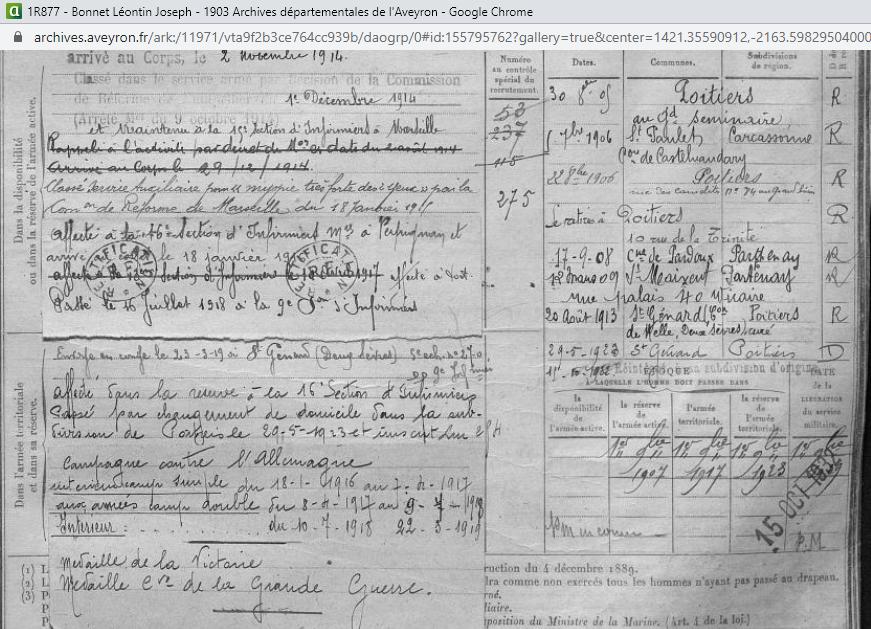 1R877 - Bonnet Léontin Joseph - 1903 Archives départementales de l'Aveyron - Google Chrome
archives.aveyron.fr/ark:/11971/vta9f2b3ce764cc939b/daogrp/0#id:155795762?gallery=true&center=1421.35590912,-2163.59829504000
arrivé au Corps, le 2 Novembre 1914.
Classé dans le service armé par décision de la Commission
de Réforme de
(Arrêté du 9 octobre 1914)
1er Décembre 1914
et Maintenu à la 15e Section d'Infirmiers à Marseille
Rappelé à l'activité par décret de du 1er août 1914
Arrivé au Corps le 29/12/1914.
Classé Service Auxiliaire pour "myopie très forte des 2 yeux" par la
Com on de Réforme de Marseille du 18 Janvier 191
Affecté à la 16e Section d'Infirmiers Mres à Perpignan et
arrivé le 18 janvier 191
affecté à la Section d'Infirmiers le 1917 affecté à
Passé le 16 Juillet 1918 à la 9e Son d'Infirmiers
RECTIFICATION
RECTIFICATION
Envoyé en congé le 23-3-19 à St Génard (Deux Sèvres)
Affecté dans la reserve à la 16e Section d'Infirmiers
Passé par changement de domicile dans la sub-
division de Poitiers le 29-5-1923 et inscrit sur
Campagne contre l'Allemagne
interieur camp simple du 18-1-1916 au 7-4-1917
aux armées camp double du 8-4-1917 au 9-7-1918
Intérieur : du 10-7-1918 22-3-1919
Médaille de la Victoire
Medaille Cve de la Grande Guerre.
Dans la disponibilité
ou dans la réserve de l'armée active.
Dans l'armée territoriale
et dans sa réserve.
(1) L
(2) L
(3) P
P
P
Numéro
au contrôle
spécial du
recrutement.
53
237
115
275
Dates. Communes. Subdivisions
de région.
30 8bre 05 Poitiers R
au gd seminaire
1 7bre 1906 St Paulet, Carcassonne R
Con de Castelnaudary
22 8bre 1906 Poitiers R
rue des Carmélites n° 74 au grand sém
Poitiers R
10 rue de la Trinité
17-9-08 Cne de Pardoux Parthenay R
12 mars 09 St Maixent Parthenay R
rue palais
20 Août 1913 St Génard Con Poitiers R
de Melle, Deux Sèvres, curé
29-5-1923 St Génard Poitiers D
Réintégré dans sa subdivision d'origine
ÉPOQUE
À LAQUELLE L'HOMME DOIT PASSER DANS
DATE
de la
LIBÉRATION
du service
militaire.
la
disponibilité
de l'armée active.
la réserve
de
l'armée active.
l'armée
territoriale.
la réserve
de
l'armée
territoriale.
1er 8bre 1er 8bre 1er 8bre 1er 8bre
1907 1917 1923
15 OCT 1932
P.M
ruction du 4 décembre 1889.
dra comme non exercés tous les hommes n'ayant pas passé au drapeau.
rné.
liaire.
position du Ministre de la Marine. (Art. 4 de la loi.)